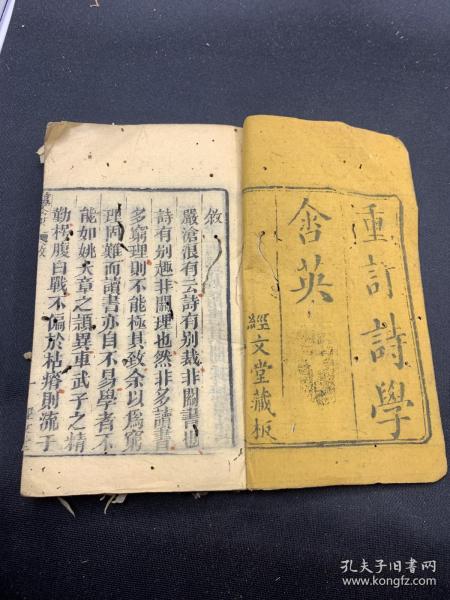 重訂詩學
含英
經文堂藏板
敘
嚴滄浪有云詩有別裁非關書也
詩有別趣非關理也然非多讀書
多窮理則不能極其致余以爲窮
理固難而讀書亦自不易學者不
能如姚大章之穎異車武子之精
勤枵腹白戰不偏於枯瘠則流于
孔夫子旧书网
www.kongfz.com